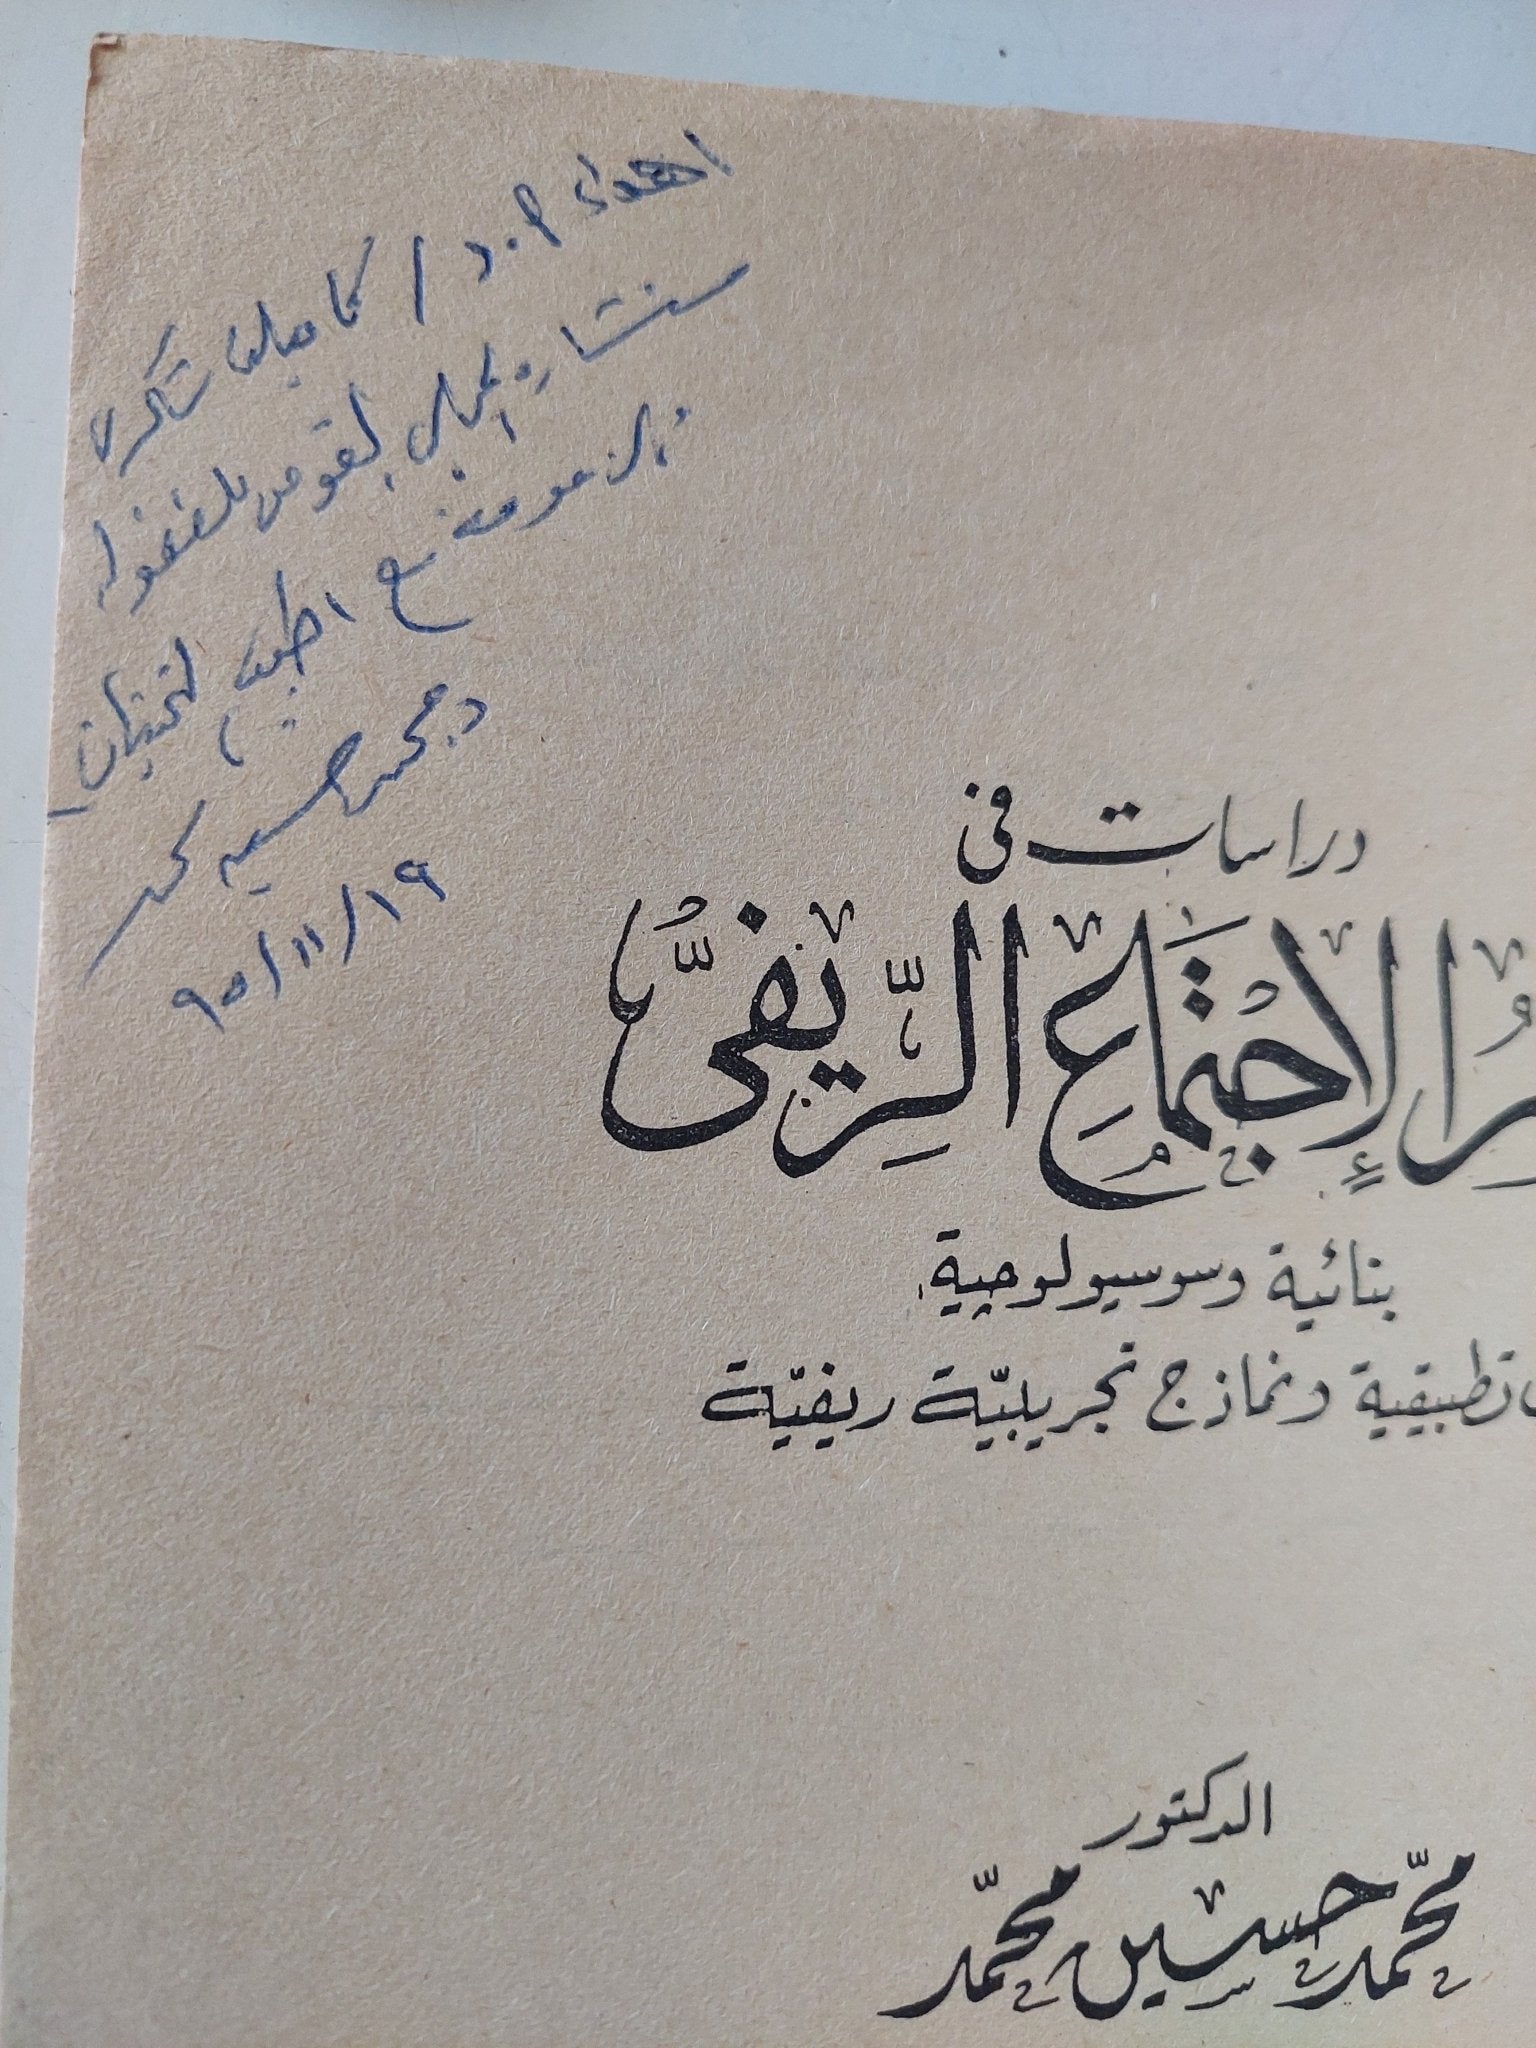 اهداء أ.د / كاميليا شكرى
مستشارة المجلس القومى للطفولة
والأمومة مع أطيب التمنيات
د. محمد حسين محمد
١٩/١١/٩٥
دراسات فى
الإجتماع الريفى
بنائية وسوسيولوجية
تطبيقية ونماذج تجريبية ريفية
الدكتور
محمد حسين محمد